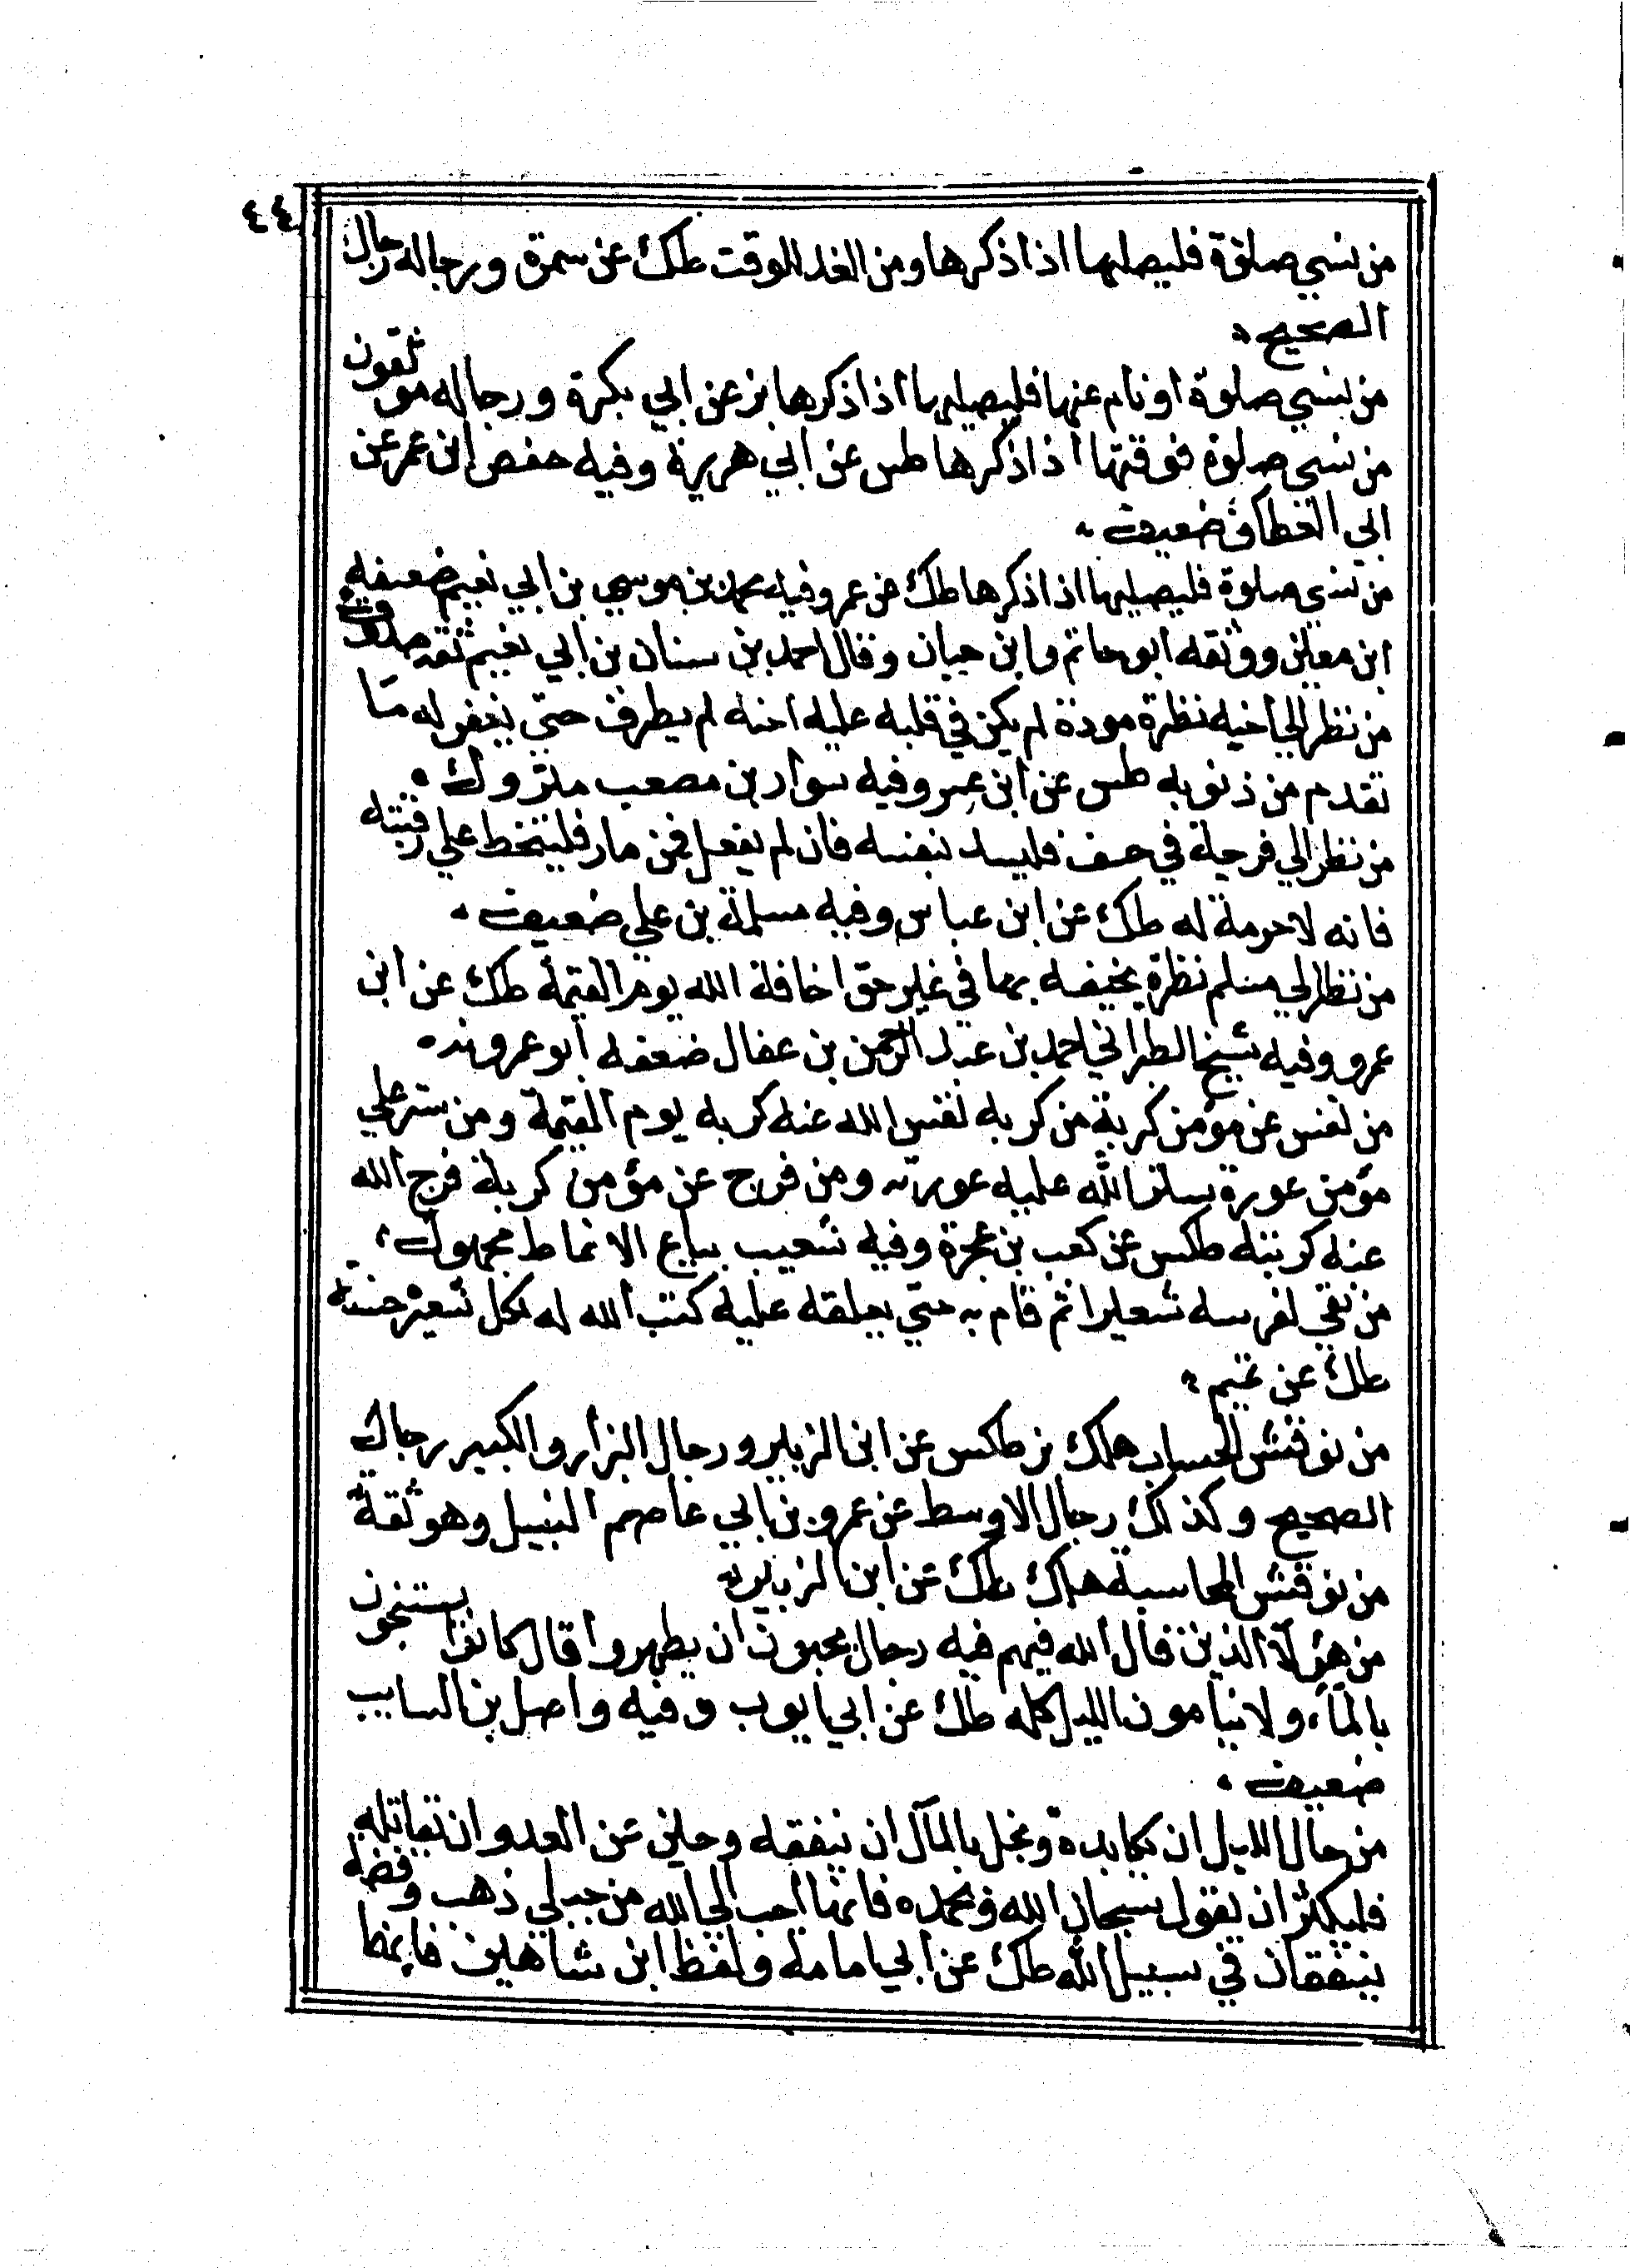 ٤٤
من نسي صلوة فليصليها اذا ذكرها ومن الغد للوقت طك عن سمرة ورجاله رجال
الصحيح
من نسي صلوة او نام عنها فليصليها اذا ذكرها بز عن ابي بكرة ورجاله موثقون
من نسي صلوة فوقتها اذا ذكرها طس عن ابي هريرة وفيه حفص ابن عمر عن
ابي العطاف ضعيف
من نسي صلوة فليصليها اذا ذكرها طك عن عمر وفيه محمد بن موسي بن ابي نعيم ضعفه
ابن معين ووثقه ابو حاتم وابن حبان وقال احمد بن سنان بن ابي نعيم ثقة صدوق
من نظر الي اخيه نظرة مودة لم يكن في قلبه عليه احنه لم يطرف حتي يغفر له ما
تقدم من ذنوبه طس عن ابن عمر وفيه سوار بن مصعب متروك
من نظر الي فرجة في صف فليسد بنفسه فان لم يفعل فمن مار فليتخط علي رقبته
فانه لا حرمة له طك عن ابن عباس وفيه مسلمة بن علي ضعيف
من نظر الي مسلم نظرة يخيفه بها في غير حق اخافة الله يوم القيمة طك عن ابن
عمرو وفيه شيخ الطبراني احمد بن عبد الرحمن بن عفال ضعفه ابو عروبه
من نفس عن مؤمن كربة من كربه نفس الله عنه كربه يوم القيمة ومن ستر علي
مؤمن عورة يستر الله عليه عورته ومن فرج عن مؤمن كربة فرج الله
عنه كربته طكس عن كعب بن عجرة وفيه شعيب بياع الانماط مجهول
من نقي لفرسه شعيرا ثم قام به حتي يعلقه عليه كتب الله له بكل شعيرة حسنة
طك عن تميم
من نوقش الحساب هلك بز طكس عن ابن الزبير ورجال البزار والكبير رجال
الصحيح وكذلك رجال الاوسط عن عمرو بن ابي عاصم النبيل وهو ثقة
من نوقش المحاسبة هلك طك عن ابن الزبير
من هؤلآ الذين قال الله فيهم فيه رجال يحبون ان يطهروا قال كانوا يستنجون
بالمآء ولا ينامون الليل كله طك عن ابي ايوب وفيه واصل بن السايب
ضعيف
من هال الليل ان يكابدة وبخل بالمآل ان ينفقه وجبن عن العدو ان يقاتله
فليكثر ان يقول سبحان الله وبحمده فانها احب الي الله من جبلي ذهب وفضه
ينفقان في سبيل الله طك عن ابي امامه ولفظ ابن شاهين